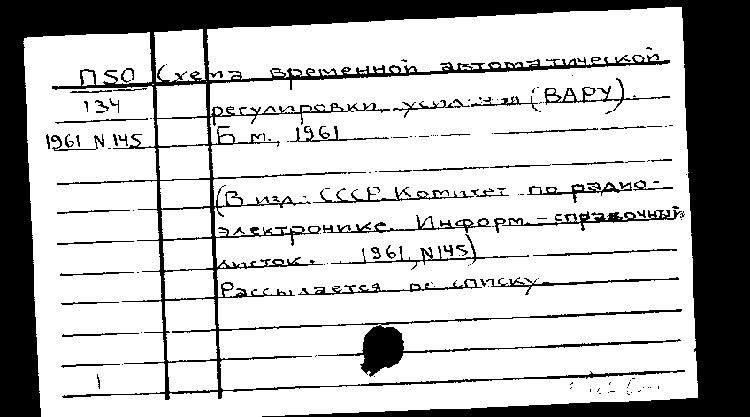 П50 Схема временной автоматической
134 регулировки усиления (ВАРУ).
1961 N 145 Б.м., 1961
(В изд.: СССР. Комитет по радио-
электронике. Информ.-справочный
листок. 1961, N145)
Рассылается по списку.
1